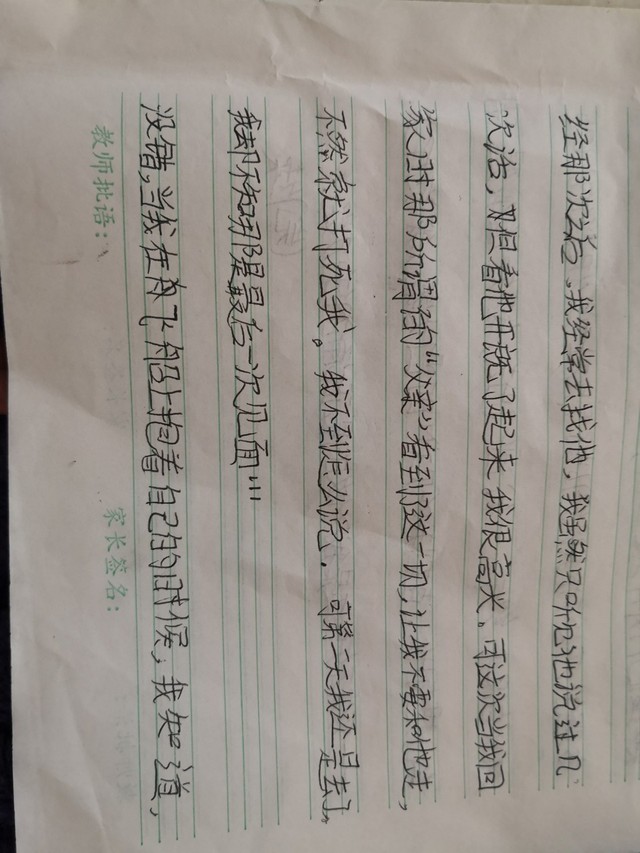 经那次之后,我经常去找他,我虽然只听见他说过几
次话,但看他开朗了起来我很高兴,可这次当我回
家时那所谓的“父亲”看到这一切,让我不要和他走,
不然就打死我。我不到怎么说,可第二天我还是去了。
我却不知那是最后一次见面…
没错,当我在飞船上抱着自己的时候,我知道,
教师批语: 家长签名: